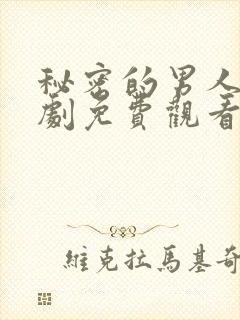 秘密的男人
劇免費觀看
維克拉馬基奇